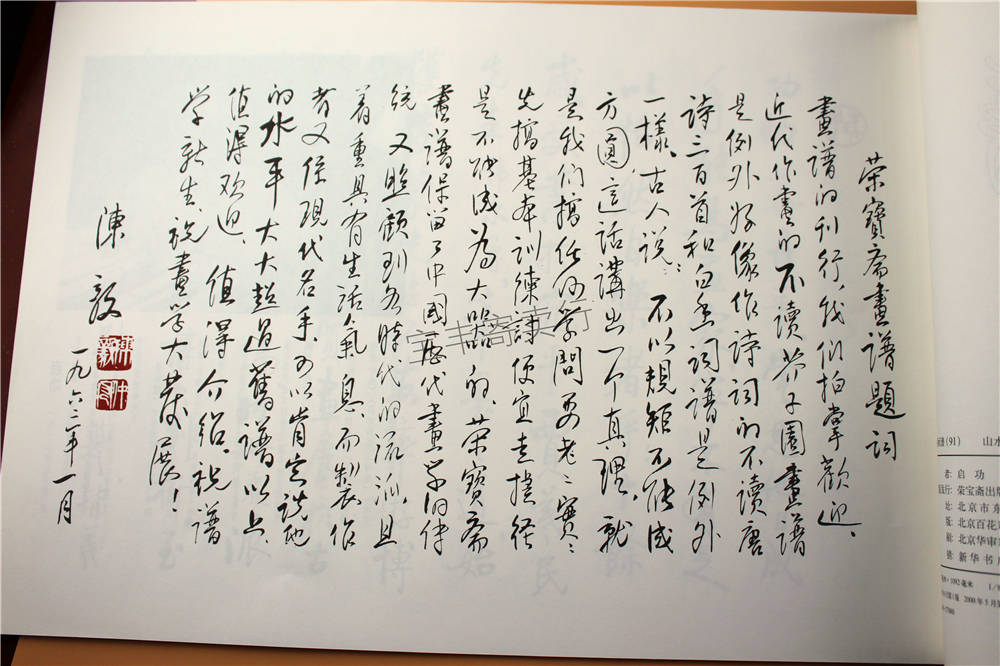 榮寶齋畫譜題词
畫譜的刊行,我们拍掌歡迎,
近代作畫的不讀芥子園畫譜
是例外,好像作詩词的不讀唐
詩三百首和白香词譜是例外
一樣,古人说:不以規矩不能成
方圓,這话講出一个真理,就
是我们搞任何学問要老老實實
先搞基本训練,便宜走捷径
是不能成為大器的,榮寶齋
畫譜保留了中國歷代畫学的传
统,又照顾到各時代的流派,且
着重具有生活氣息,而製作
者又係現代名手,可以肯定说他
的水平大大超過舊譜以上,
值得欢迎,值得介绍,祝譜
学新生,祝畫学大發展!
陳毅
一九六三年一月
陳毅
(91) 山水
者:启功
发行:荣宝斋出版
址:北京市东
北京百花
北京华审
新华书
1092毫米
2000年5月第